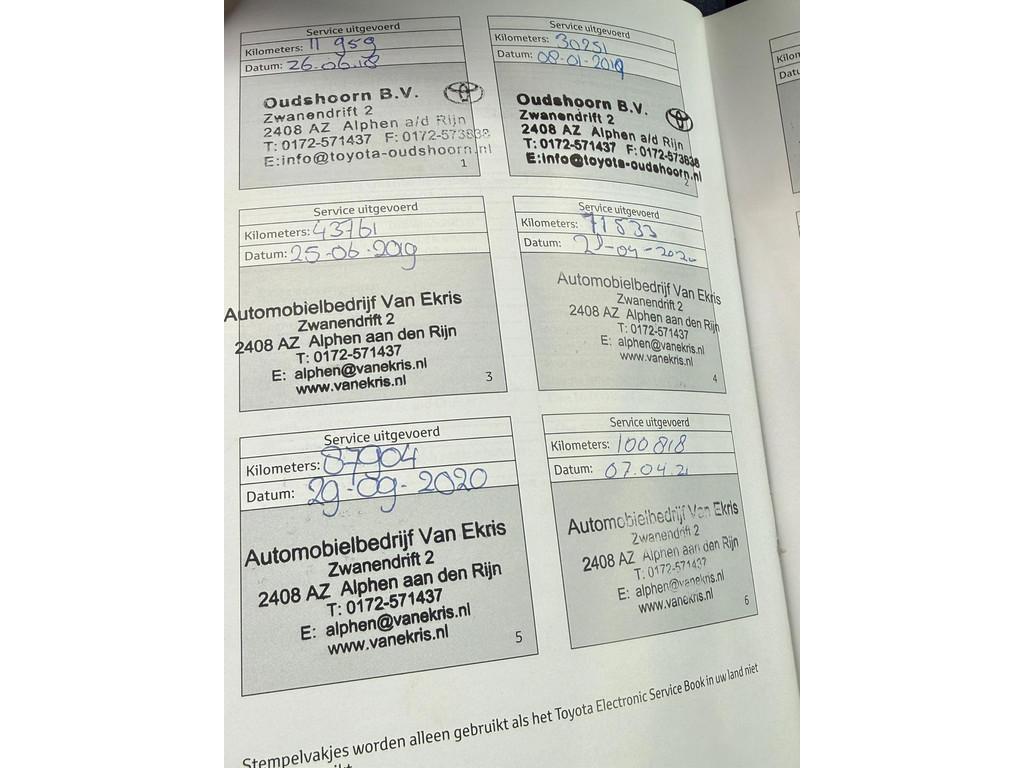 Service uitgevoerd
Kilometers: 11 959
Datum: 26.06.18
Oudshoorn B.V.
Zwanendrift 2
2408 AZ Alphen a/d Rijn
T: 0172-571437 F: 0172-573838
E:info@toyota-oudshoorn.nl
1
Service uitgevoerd
Kilometers: 30251
Datum: 08-01-2019
Oudshoorn B.V.
Zwanendrift 2
2408 AZ Alphen a/d Rijn
T: 0172-571437 F: 0172-573838
E:info@toyota-oudshoorn.nl
2
Service uitgevoerd
Kilometers: 43761
Datum: 25-06-2019
Automobielbedrijf Van Ekris
Zwanendrift 2
2408 AZ Alphen aan den Rijn
T: 0172-571437
E: alphen@vanekris.nl
www.vanekris.nl
3
Service uitgevoerd
Kilometers: 71533
Datum: 21-04-2020
Automobielbedrijf Van Ekris
Zwanendrift 2
2408 AZ Alphen aan den Rijn
T: 0172-571437
E: alphen@vanekris.nl
www.vanekris.nl
4
Service uitgevoerd
Kilometers: 87904
Datum: 29-09-2020
Automobielbedrijf Van Ekris
Zwanendrift 2
2408 AZ Alphen aan den Rijn
T: 0172-571437
E: alphen@vanekris.nl
www.vanekris.nl
5
Service uitgevoerd
Kilometers: 100818
Datum: 07.04.21
Automobielbedrijf Van Ekris
Zwanendrift 2
2408 AZ Alphen aan den Rijn
T: 0172-571437
E: alphen@vanekris.nl
www.vanekris.nl
6
Stempelvakjes worden alleen gebruikt als het Toyota Electronic Service Book in uw land niet